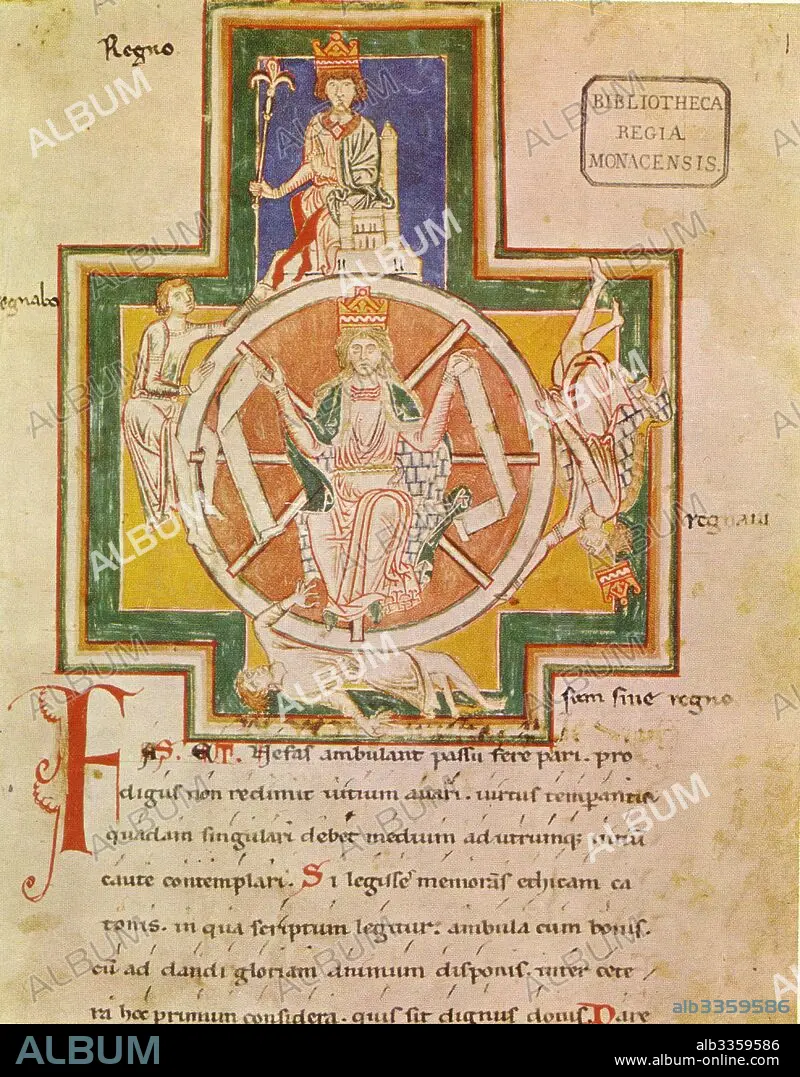 Regno
1
BIBLIOTHECA
REGIA
MONACENSIS.
egnabo
regnaui
sum sine regno
FAS. ET. Nefas ambulant passu fere pari. pro
digus non redimit uitium auari. uirtus temperantia
quadam singulari debet medium ad utrumq; uitiū
caute contemplari. Si legisse memoras ethicam ca
tonis. in qua scriptum legitur. ambula cum bonis.
cū ad dandi gloriam animum disponis. inter cete
ra hoc primum considera. quis sit dignus donis. Dare
alb3359586
ALBUM
alb3359586
www.album-online.com